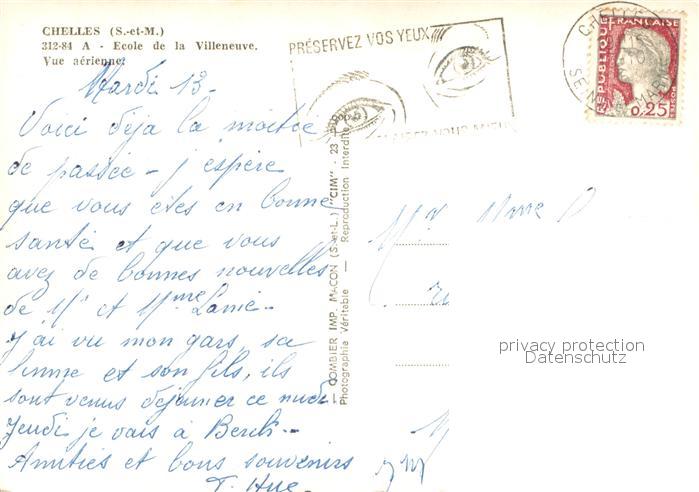 CHELLES (S.-et-M.)
312-84 A - Ecole de la Villeneuve.
Vue aérienne.
PRÉSERVEZ VOS YEUX
RÉPUBLIQUE FRANÇAISE
POSTES
0,25
Mardi 13.
Voici déja la moitié
de passée - j'espère
que vous êtes en bonne
santé et que vous
avez de bonnes nouvelles
de Mr et Mme Lanie-
J'ai vu mon gars, sa
femme et son fils, ils
sont venus déjeuner ce midi.
Jeudi je vais à Berck-
Amitiés et bons souvenirs
T. Hue
COMBIER IMP. MACON (S.-et-L.) "CIM" - 23
Photographie Véritable — Reproduction Interdite
privacy protection
Datenschutz